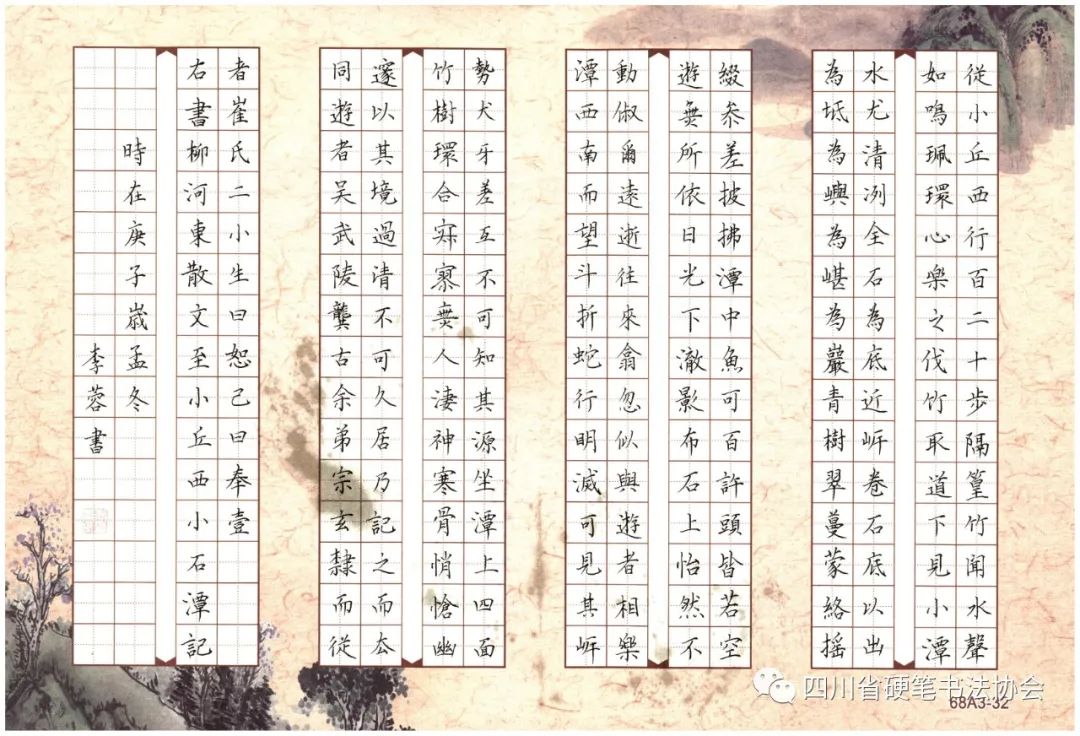 從小丘西行百二十步隔篁竹聞水聲
如鳴珮環心樂之伐竹取道下見小潭
水尤清冽全石為底近岸卷石底以出
為坻為嶼為嵁為巖青樹翠蔓蒙絡摇
綴叅差披拂潭中魚可百許頭皆若空
遊無所依日光下澈影布石上怡然不
動俶爾遠逝往來翕忽似與遊者相樂
潭西南而望斗折蛇行明滅可見其岸
勢犬牙差互不可知其源坐潭上四面
竹樹環合寂寥無人淒神寒骨悄愴幽
邃以其境過清不可久居乃記之而去
同遊者吴武陵龔古余弟宗玄隸而從
者崔氏二小生曰恕己曰奉壹
右書柳河東散文至小丘西小石潭記
時在庚子歲孟冬
李蓉書
四川省硬笔书法协会
68A3-32